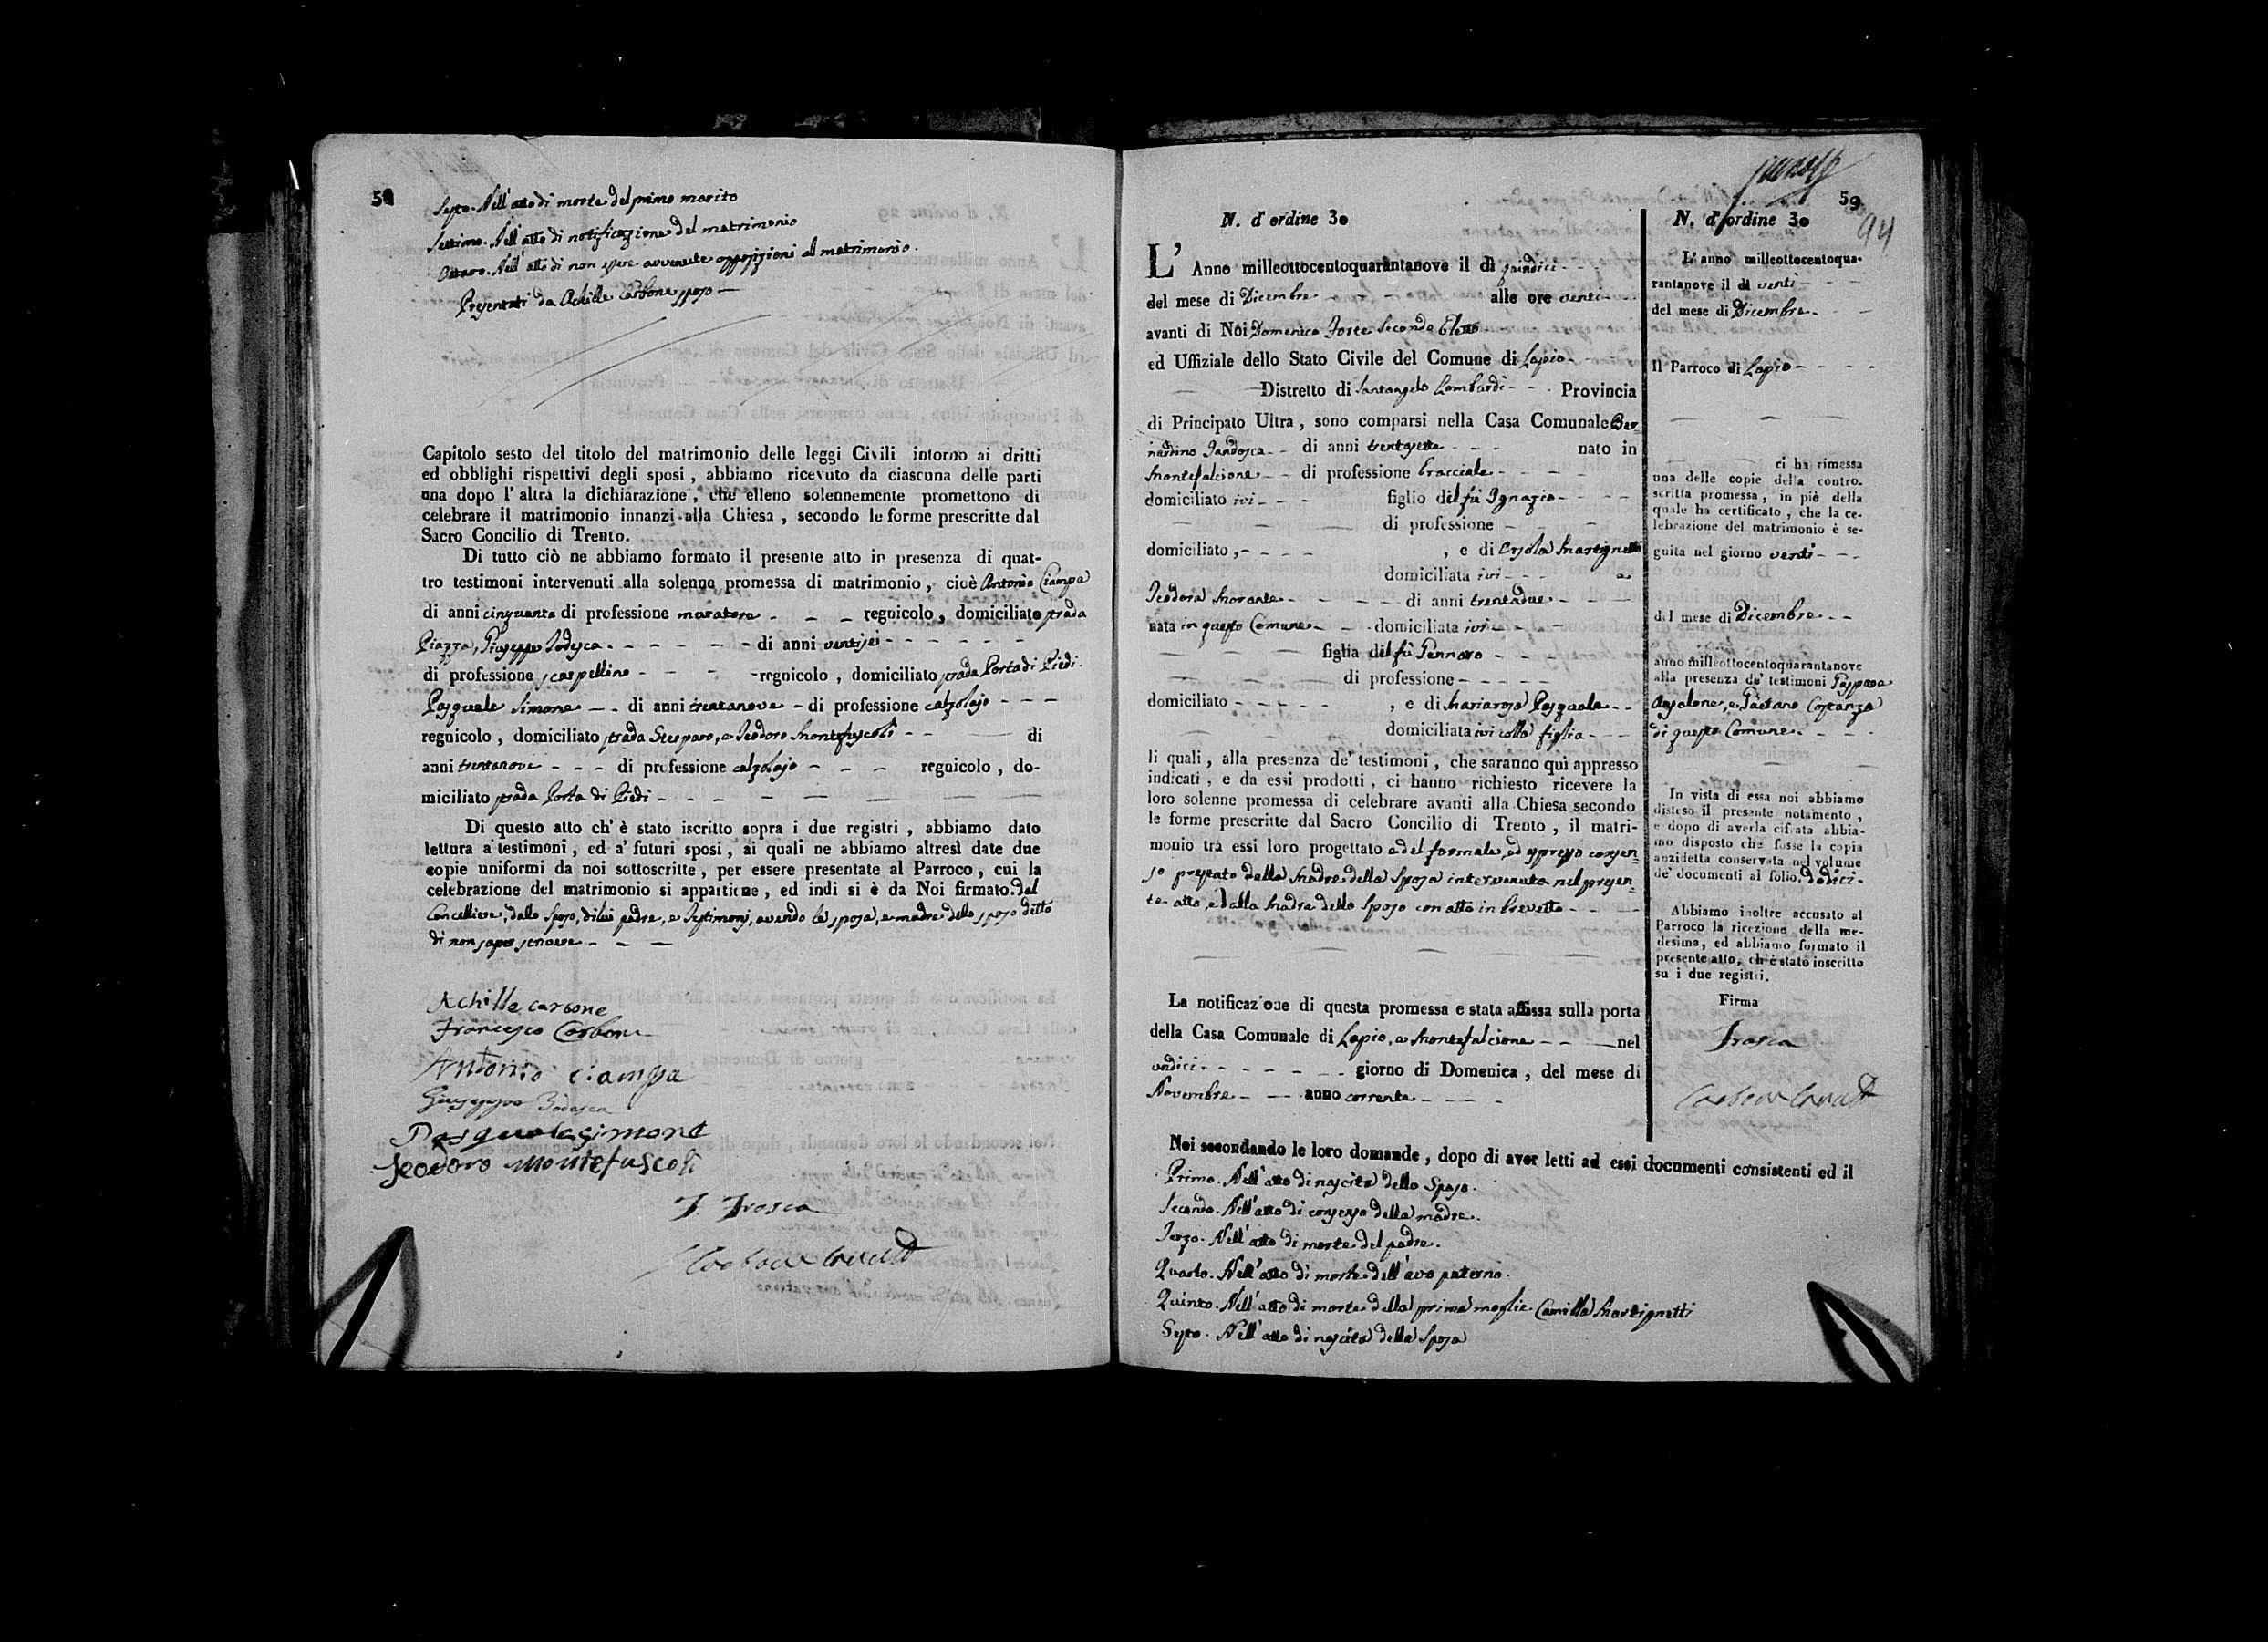 58
Sesto. Nell'atto di morte del primo marito
Settimo. Nell'atto di notificazione del matrimonio
Ottavo. Nell'atto di non essere avvenute opposizioni al matrimonio.
Presentati da Achille Carbone sposo
Capitolo sesto del titolo del matrimonio delle leggi Civili intorno ai dritti
ed obblighi rispettivi degli sposi, abbiamo ricevuto da ciascuna delle parti
una dopo l'altra la dichiarazione, che elleno solennemente promettono di
celebrare il matrimonio innanzi alla Chiesa, secondo le forme prescritte dal
Sacro Concilio di Trento.
Di tutto ciò ne abbiamo formato il presente atto in presenza di quat-
tro testimoni intervenuti alla solenne promessa di matrimonio, cioè Antonio Ciampa
di anni cinquanta di professione muratore - - - regnicolo, domiciliato strada
Piazza, Giuseppe Todesca - - - - - - di anni ventisei - - - - - -
di professione scarpellino - - - regnicolo, domiciliato strada Porta di Piedi.
Pasquale Simone - - di anni trentanove - di professione calzolajo - - -
regnicolo, domiciliato strada e Teodoro Montefuscoli - - - di
anni trentanove - - - di professione calzolajo - - - regnicolo, do-
miciliato strada Porta di Piedi - - - - - - - -
Di questo atto ch'è stato iscritto sopra i due registri, abbiamo dato
lettura a' testimoni, ed a' futuri sposi, ai quali ne abbiamo altresì date due
copie uniformi da noi sottoscritte, per essere presentate al Parroco, cui la
celebrazione del matrimonio si appartiene, ed indi si è da Noi firmato. dal
Cancelliere, dallo sposo, di lui padre, e Testimoni, avendo la sposa, e madre dello sposo detto
di non saper scrivere - - -
Achille carbone
Francesco Carbone
Antonio Ciampa
Giuseppe Todesca
Pasquale simone
Teodoro Montefuscoli
Trosca
59
94
N. d'ordine 30
L'Anno milleottocentoquarantanove il dì quindici - - -
del mese di Dicembre - - - alle ore venti - -
avanti di Noi Domenico Forte Secondo Eletto
ed Uffiziale dello Stato Civile del Comune di Lapio - -
Distretto di Santangelo Lombardi - - - Provincia
di Principato Ultra, sono comparsi nella Casa Comunale Ber-
nardino di anni trentasette - - - nato in
Montefalcione - - di professione bracciale - - - -
domiciliato ivi - - - figlio del fù Ignazio - - - -
di professione - - -
domiciliato, - - - - , e di Orsola Martignetti
domiciliata ivi - - - e
Teodora Morante - - - - - di anni trentadue - - - -
nata in questo Comune - - domiciliata ivi - - - -
figlia del fù Gennaro - - -
di professione - - - - -
domiciliato - - - - - , e di Mariarosa Pasquale - -
domiciliata ivi colla figlia - - -
li quali, alla presenza de' testimoni, che saranno qui appresso
indicati, e da essi prodotti, ci hanno richiesto ricevere la
loro solenne promessa di celebrare avanti alla Chiesa secondo
le forme prescritte dal Sacro Concilio di Trento, il matri-
monio tra essi loro progettato e del formale, ed espresso consen-
so prestato dalla Madre della Sposa intervenuta nel presen-
te atto, e dalla Madre dello Sposo con atto in brevetto - - -
La notificazione di questa promessa e stata affissa sulla porta
della Casa Comunale di Lapio, e Montefalcione - - - nel
undici - - - - - - giorno di Domenica, del mese di
Novembre - - - anno corrente - - - -
Noi secondando le loro domande, dopo di aver letti ad essi documenti consistenti ed il
Primo. Nell'atto di nascita dello Sposo.
Secondo. Nell'atto di consenso della madre.
Terzo. Nell'atto di morte del padre.
Quarto. Nell'atto di morte dell'avo paterno.
Quinto. Nell'atto di morte della prima moglie Camilla Martignetti
Sesto. Nell'atto di nascita della Sposa
N. d'ordine 30
L'anno milleottocentoqua-
rantanove il dì venti - - -
del mese di Dicembre - - -
Il Parroco di Lapio - - - -
ci ha rimessa
una delle copie della contro-
scritta promessa, in piè della
quale ha certificato, che la ce-
lebrazione del matrimonio è se-
guita nel giorno venti - - -
del mese di Dicembre - -
anno milleottocentoquarantanove
alla presenza de' testimoni Gaspare
Anzalone, e Gaetano Costanza
di questo Comune - - - -
In vista di essa noi abbiamo
disteso il presente notamento,
e dopo di averla cifrata abbia-
mo disposto che fosse la copia
anzidetta conservata nel volume
de' documenti al folio dodici -
Abbiamo inoltre accusato al
Parroco la ricezione della me-
desima, ed abbiamo formato il
presente atto, ch'è stato inscritto
su i due registri.
Firma
Trosca